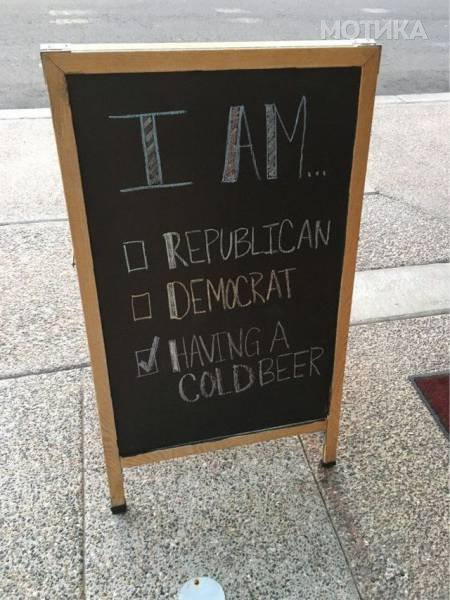 МОТИКА
I AM...
REPUBLICAN
DEMOCRAT
HAVING A
COLD BEER